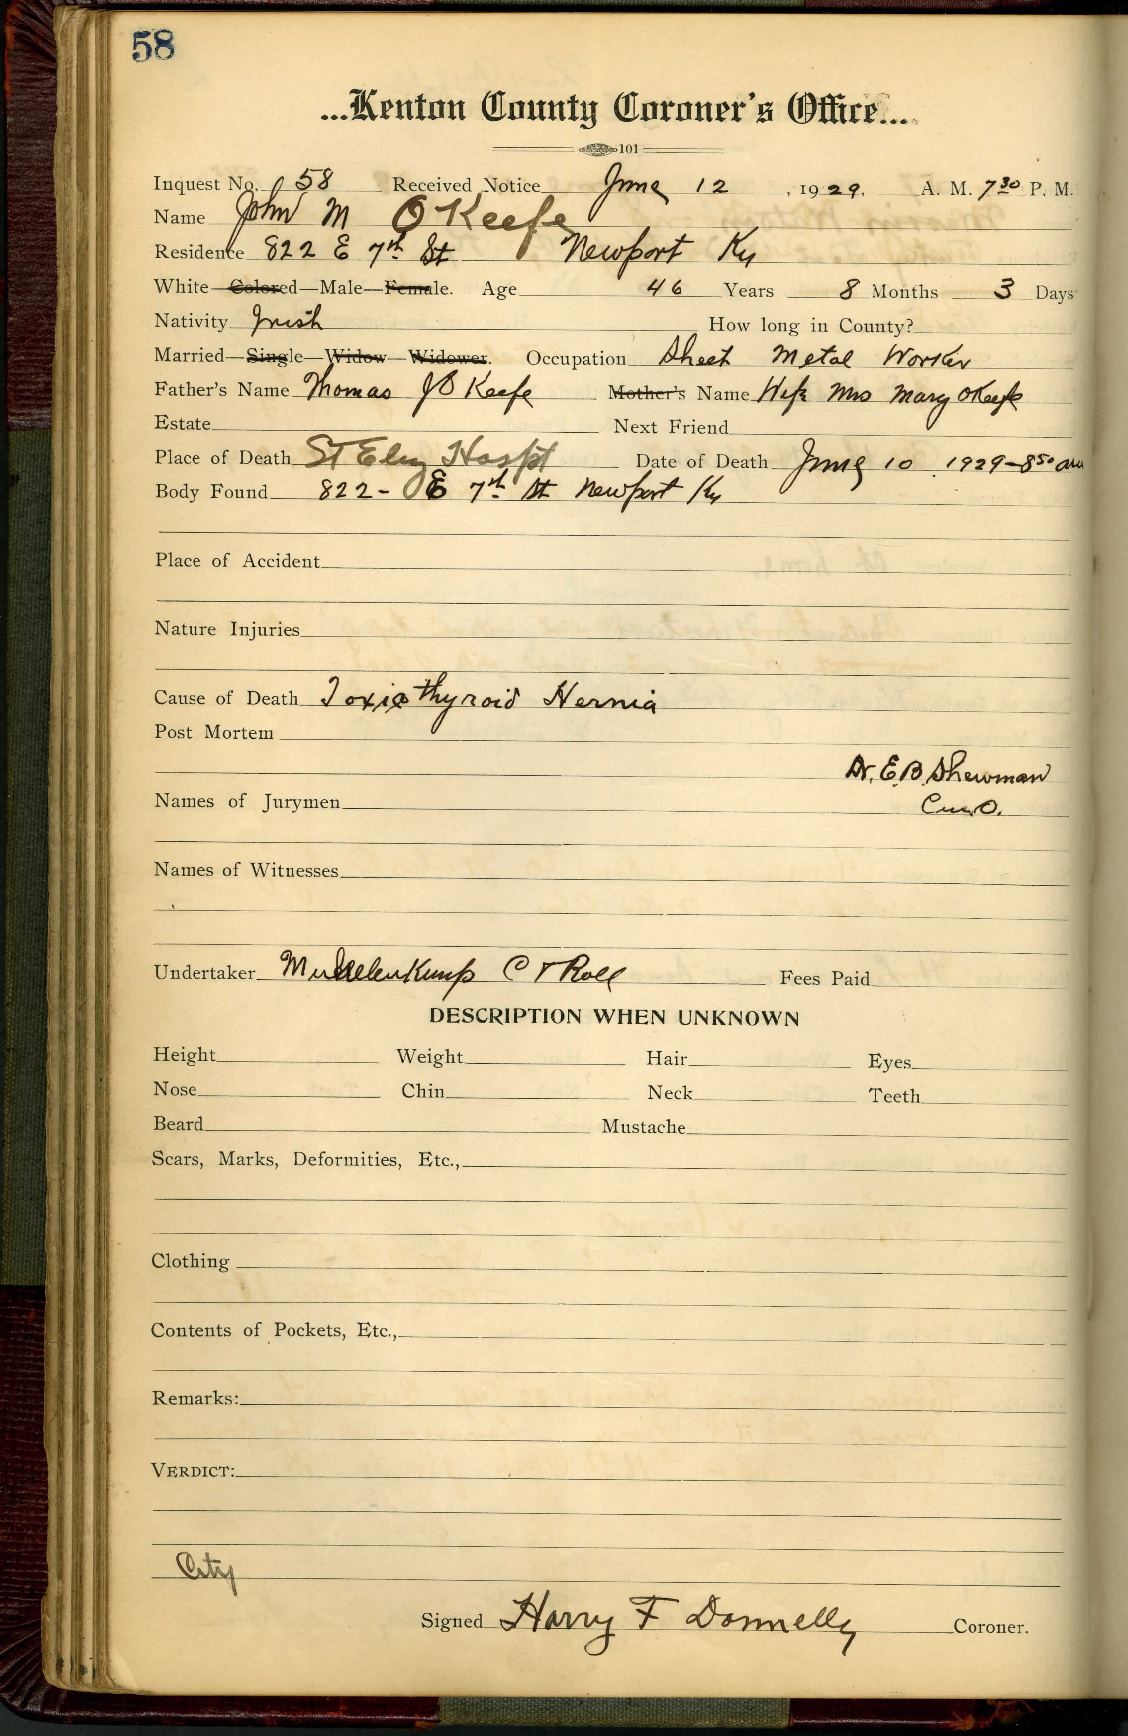 58
...Kenton County Coroner's Office...
101
Inquest No. 58 Received Notice June 12, 1929, A. M. 7³⁰ P. M.
Name John M O'Keefe
Residence 822 E 7th St Newport Ky
White—Colored—Male—Female. Age 46 Years 8 Months 3 Days
Nativity Irish How long in County?
Married—Single—Widow—Widower. Occupation Sheet Metal Worker
Father's Name Thomas J O Keefe Mother's Name Wife Mrs Mary OKeefe
Estate Next Friend
Place of Death St Eliz Hospt Date of Death June 10 1929-8⁵⁰ am
Body Found 822- E 7th St Newport Ky
Place of Accident
Nature Injuries
Cause of Death Toxic thyroid Hernia
Post Mortem
Dr. E.B. Shewman
Names of Jurymen Cin. O.
Names of Witnesses
Undertaker C T Roll Fees Paid
DESCRIPTION WHEN UNKNOWN
Height Weight Hair Eyes
Nose Chin Neck Teeth
Beard Mustache
Scars, Marks, Deformities, Etc.,
Clothing
Contents of Pockets, Etc.,
Remarks:
VERDICT:
City
Signed Harry F Donnelly Coroner.